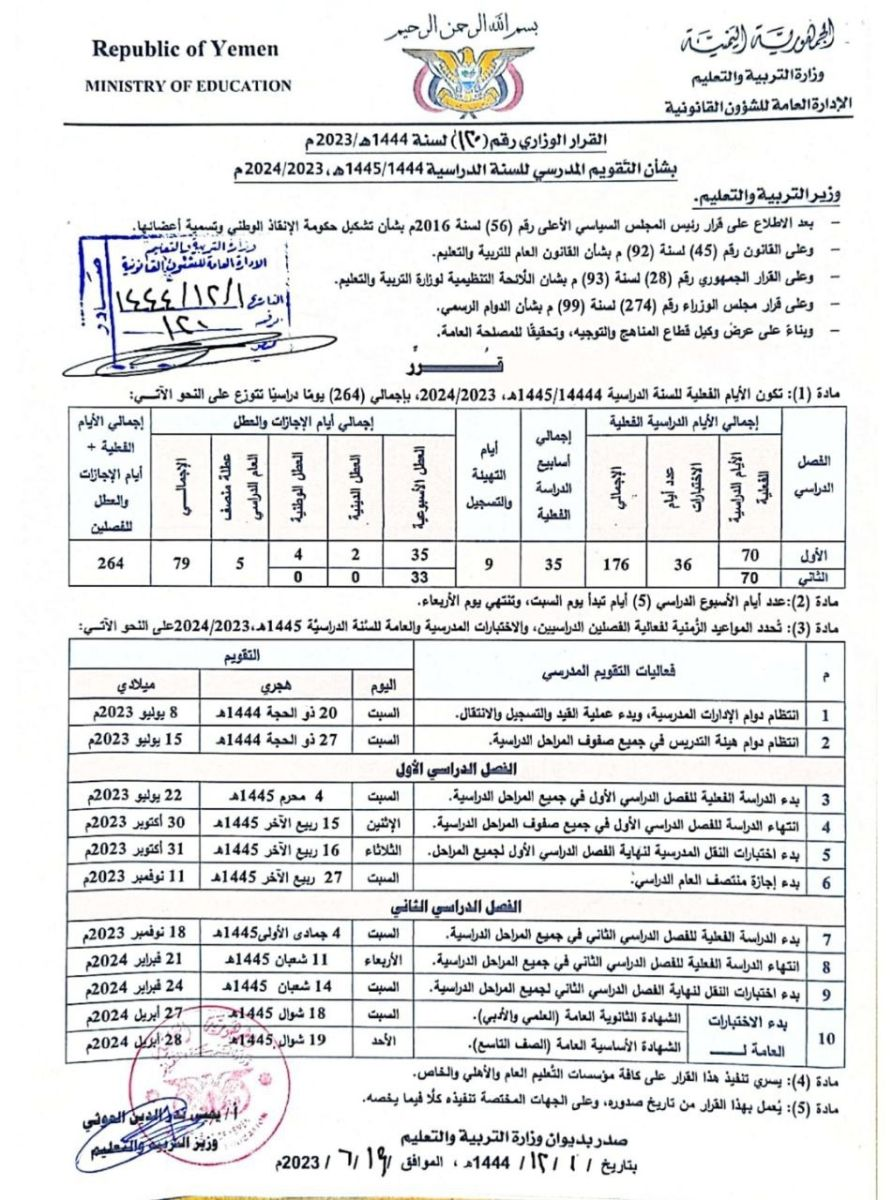 بسم الله الرحمن الرحيم
Republic of Yemen
MINISTRY OF EDUCATION
الجمهورية اليمنية
وزارة التربية والتعليم
الإدارة العامة للشؤون القانونية
القرار الوزاري رقم (١٢٠) لسنة 1444هـ/2023م
بشأن التقويم المدرسي للسنة الدراسية 1445/1444هـ، 2024/2023م
وزير التربية والتعليم.
– بعد الاطلاع على قرار رئيس المجلس السياسي الأعلى رقم (56) لسنة 2016م بشأن تشكيل حكومة الإنقاذ الوطني وتسمية أعضائها.
– وعلى القانون رقم (45) لسنة (92) م بشأن القانون العام للتربية والتعليم.
– وعلى القرار الجمهوري رقم (28) لسنة (93) م بشان اللائحة التنظيمية لوزارة التربية والتعليم.
– وعلى قرار مجلس الوزراء رقم (274) لسنة (99) م بشأن الدوام الرسمي.
– وبناءً على عرض وكيل قطاع المناهج والتوجيه، وتحقيقًا للمصلحة العامة.
وزارة التربية والتعليم
الإدارة العامة للشئون القانونية
صادر
التاريخ ١٤٤٤/١٢/١
رقم ١٢٠
قُــــرِّر
مادة (1): تكون الأيام الفعلية للسنة الدراسية 1445/14444هـ، 2024/2023، بإجمالي (264) يومًا دراسيًا تتوزع على النحو الآتـــي:
الفصل الدراسي
إجمالي الأيام الدراسية الفعلية
إجمالي أسابيع الدراسة الفعلية
أيام التهيئة والتسجيل
إجمالي أيام الإجازات والعطل
إجمالي الأيام الفعلية + أيام الإجازات والعطل للفصلين
الأيام الدراسية الفعلية
عدد أيام الاختبارات
الإجمالي
العطل الأسبوعية
العطل الدينية
العطل الوطنية
عطلة منصف العام الدراسي
الإجمالــي
الأول 70 36 176 35 9 35 2 4 5 79 264
الثاني 70 33 0 0
مادة (2):عدد أيام الأسبوع الدراسي (5) أيام تبدأ يوم السبت، وتنتهي يوم الأربعاء.
مادة (3): تُحدد المواعيد الزُمنية لفعالية الفصلين الدراسيين، والاختبارات المدرسية والعامة للسنة الدراسيّة 1445هـ،2024/2023على النحو الآتـي:
م
فعاليات التقويم المدرسي
التقويم
اليوم
هجري
ميلادي
1 انتظام دوام الإدارات المدرسية، وبدء عملية القيد والتسجيل والانتقال. السبت 20 ذو الحجة 1444هـ 8 يوليو 2023م
2 انتظام دوام هيئة التدريس في جميع صفوف المراحل الدراسية. السبت 27 ذو الحجة 1444هـ 15 يوليو 2023م
الفصل الدراسي الأول
3 بدء الدراسة الفعلية للفصل الدراسي الأول في جميع المراحل الدراسية. السبت 4 محرم 1445هـ 22 يوليو 2023م
4 انتهاء الدراسة للفصل الدراسي الأول في جميع صفوف المراحل الدراسية. الإثنين 15 ربيع الآخر 1445هـ 30 أكتوبر 2023م
5 بدء اختبارات النقل المدرسية لنهاية الفصل الدراسي الأول لجميع المراحل. الثلاثاء 16 ربيع الآخر 1445هـ 31 أكتوبر 2023م
6 بدء إجازة منتصف العام الدراسي: السبت 27 ربيع الآخر 1445هـ 11 نوفمبر 2023م
الفصل الدراسي الثاني
7 بدء الدراسة الفعلية للفصل الدراسي الثاني في جميع المراحل الدراسية. السبت 4 جمادى الأولى1445هـ 18 نوفمبر 2023م
8 انتهاء الدراسة الفعلية للفصل الدراسي الثاني في جميع المراحل الدراسية. الأربعاء 11 شعبان 1445هـ 21 فبراير 2024م
9 بدء اختبارات النقل لنهاية الفصل الدراسي الثاني لجميع المراحل الدراسية. السبت 14 شعبان 1445هـ 24 فبراير 2024م
10 بدء الاختبارات العامة لـــــ الشهادة الثانوية العامة (العلمي والأدبي). السبت 18 شوال 1445هـ 27 أبريل 2024م
الشهادة الأساسية العامة (الصف التاسع). الأحد 19 شوال 1445هـ 28 أبريل 2024م
مادة (4): يسري تنفيذ هذا القرار على كافة مؤسسات التعليم العام والأهلي والخاص.
مادة (5): يُعمل بهذا القرار من تاريخ صدوره، وعلى الجهات المختصة تنفيذه كلًا فيما يخصه.
صدر بديوان وزارة التربية والتعليم
بتاريخ ١ /١٢/ 1444هـ ، الموافق ١٩/ ٦ / 2023م
أ / يحيى بدر الدين الحوثي
وزير التربية والتعليم